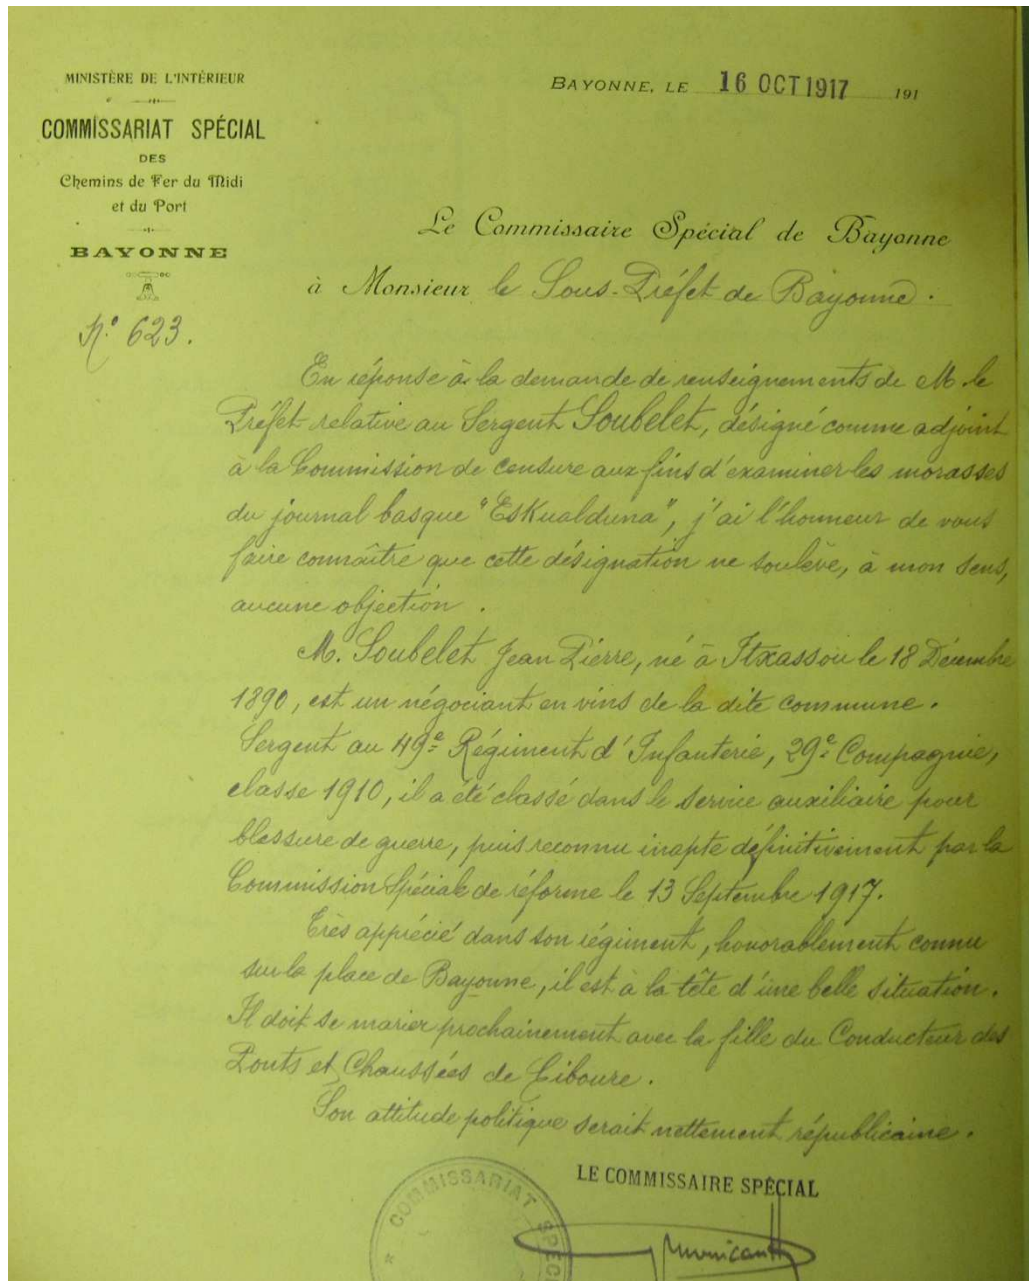 MINISTÈRE DE L'INTÉRIEUR
COMMISSARIAT SPÉCIAL
DES
Chemins de Fer du Midi
et du Port
BAYONNE
N.° 623.
BAYONNE, LE 16 OCT 1917 191
Le Commissaire Spécial de Bayonne
à Monsieur le Sous-Préfet de Bayonne.
En réponse à la demande de renseignements de M. le
Préfet relative au Sergent Soubelet, désigné comme adjoint
à la Commission de censure aux fins d'examiner les morasses
du journal basque "Eskualduna", j'ai l'honneur de vous
faire connaître que cette désignation ne soulève, à mon sens,
aucune objection.
M. Soubelet Jean Pierre, né à Itxassou le 18 Décembre
1890, est un négociant en vins de la dite commune.
Sergent au 49e Régiment d'Infanterie, 29e Compagnie,
classe 1910, il a été classé dans le service auxiliaire pour
blessure de guerre, puis reconnu inapte définitivement par la
Commission Spéciale de réforme le 13 Septembre 1917.
Très apprécié dans son régiment, honorablement connu
sur la place de Bayonne, il est à la tête d'une belle situation.
Il doit se marier prochainement avec la fille du Conducteur des
Ponts et Chaussées de Ciboure.
Son attitude politique serait nettement républicaine.
LE COMMISSAIRE SPÉCIAL
* COMMISSARIAT SPÉC